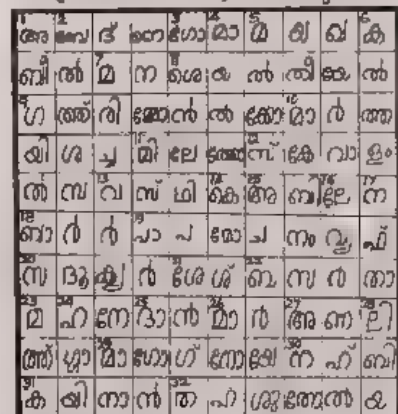 അ വേ ദ് നെ ഗോ മാ മ്മ യ ഖ ക
ബീ ൽ മ ന ശെ യ ൽ തീ ങ്കു ൽ
ഗ ത്ത് രി മോ ൻ ൽ ക്കോ മാ ർ ത്ത
യി ശ ച്ച മി ലേ ത്തോ സ് കേ വാ ളം
ൽ സ വ സ് ഥി കെ അ ബി ലേ ന
ബാ ർ ർ പാ പ മോ ച നം വൃ ഫ്
സ ദൂ ക്യ ർ ശേ ശ് ബ സ ർ താ
മ ഹ നേ ദാ ൻ മാ ർ അ ണ ലി
ത്ത് ഗ്ഗാ മാ ഗോ ഗ് നോ യേ ന ഹ് ബി
ക യി നാ ൻ ത ഹ ശു ത്തോ ൽ യ